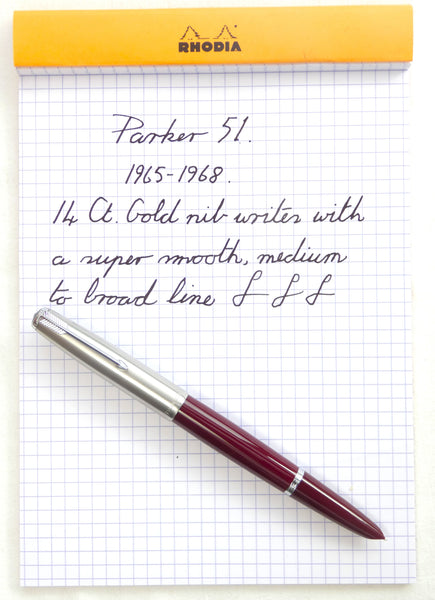 RHODIA
Parker 51.
1965-1968.
14 Ct. Gold nib writes with
a super smooth, medium
to broad line £ £ £